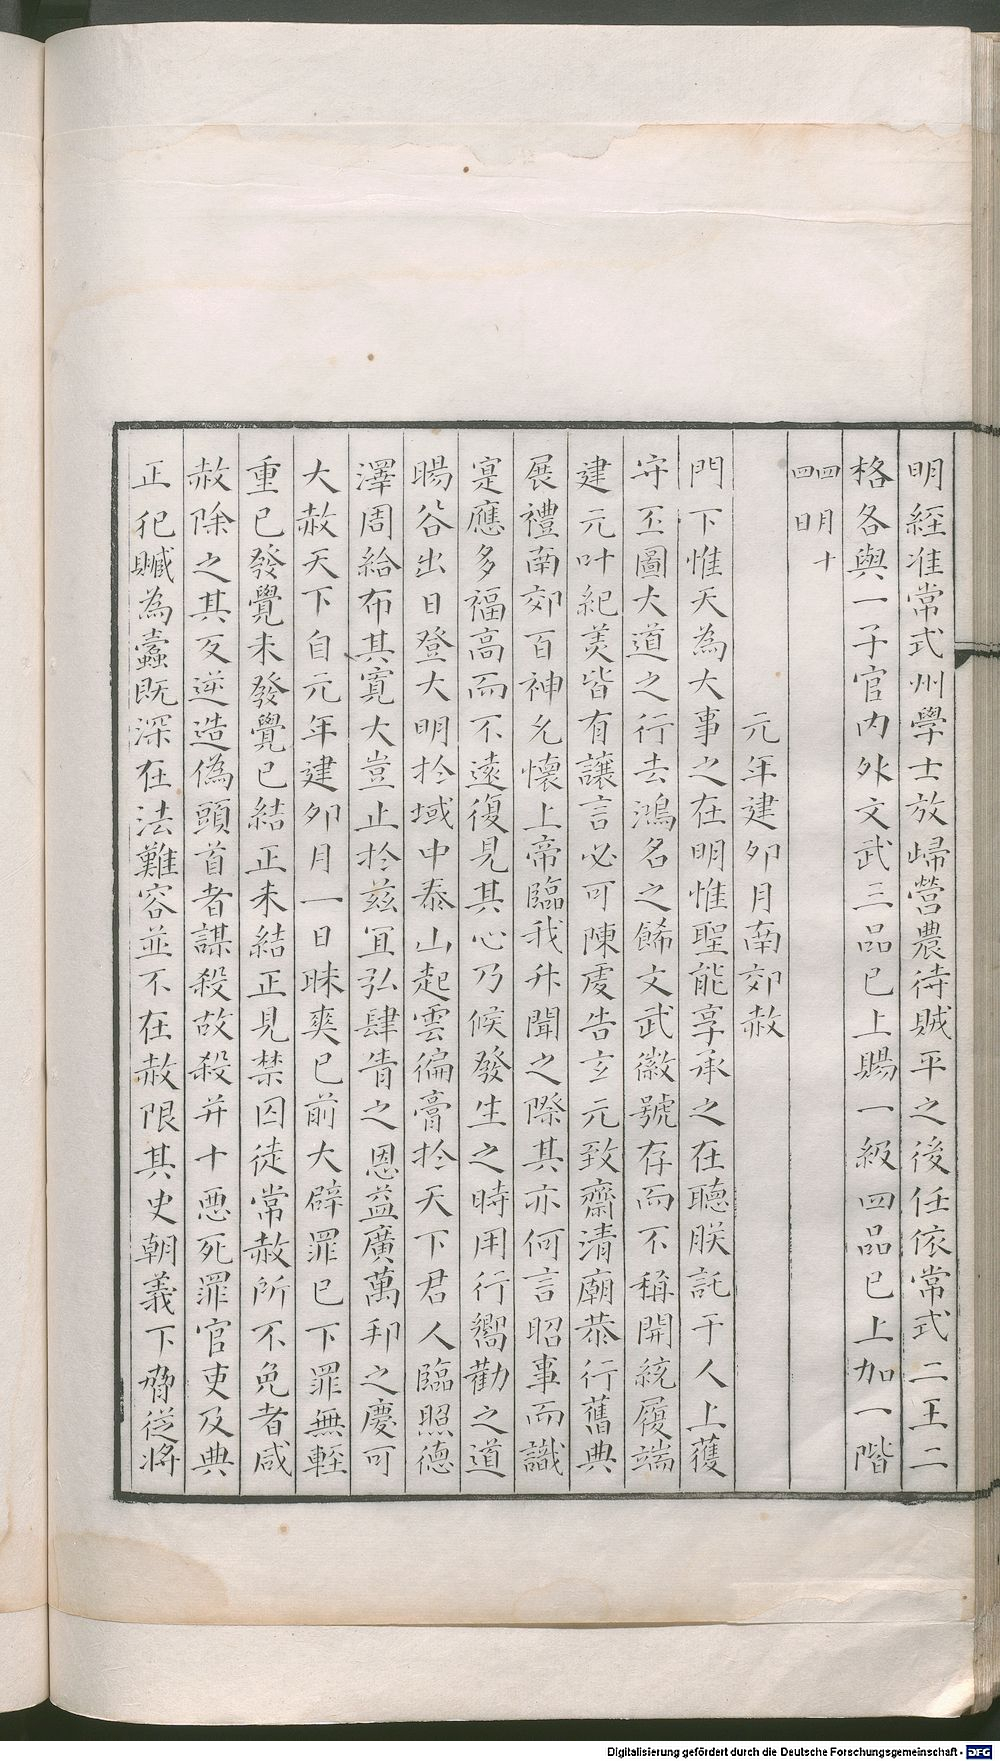 明經准常式州學士放歸營農待賊平之後任依常式二王二
格各與一子官內外文武三品已上賜一級四品已上加一階
四月十
四日
元年建夘月南郊赦
門下惟天為大事之在明惟聖能享承之在聽朕託于人上獲
守丕圖大道之行去鴻名之餙文武徽號存而不稱開統履端
建元叶紀羙皆有讓言必可陳虔告玄元致齋清廟恭行舊典
展禮南郊百神允懷上帝臨我升聞之際其亦何言昭事而識
寔應多福高而不遠復見其心乃候發生之時用行嚮勸之道
暘谷出日登大明扵域中泰山起雲徧膏扵天下君人臨照德
澤周給布其寬大豈止扵兹冝弘肆眚之恩益廣萬邦之慶可
大赦天下自元年建夘月一日昧爽已前大辟罪已下罪無輕
重已發覺未發覺已結正未結正見禁囚徒常赦所不免者咸
赦除之其反逆造偽頭首者謀殺故殺并十惡死罪官吏及典
正犯贓為蠹既深在法難容並不在赦限其史朝義下脅從將
Digitalisierung gefördert durch die Deutsche Forschungsgemeinschaft - DFG